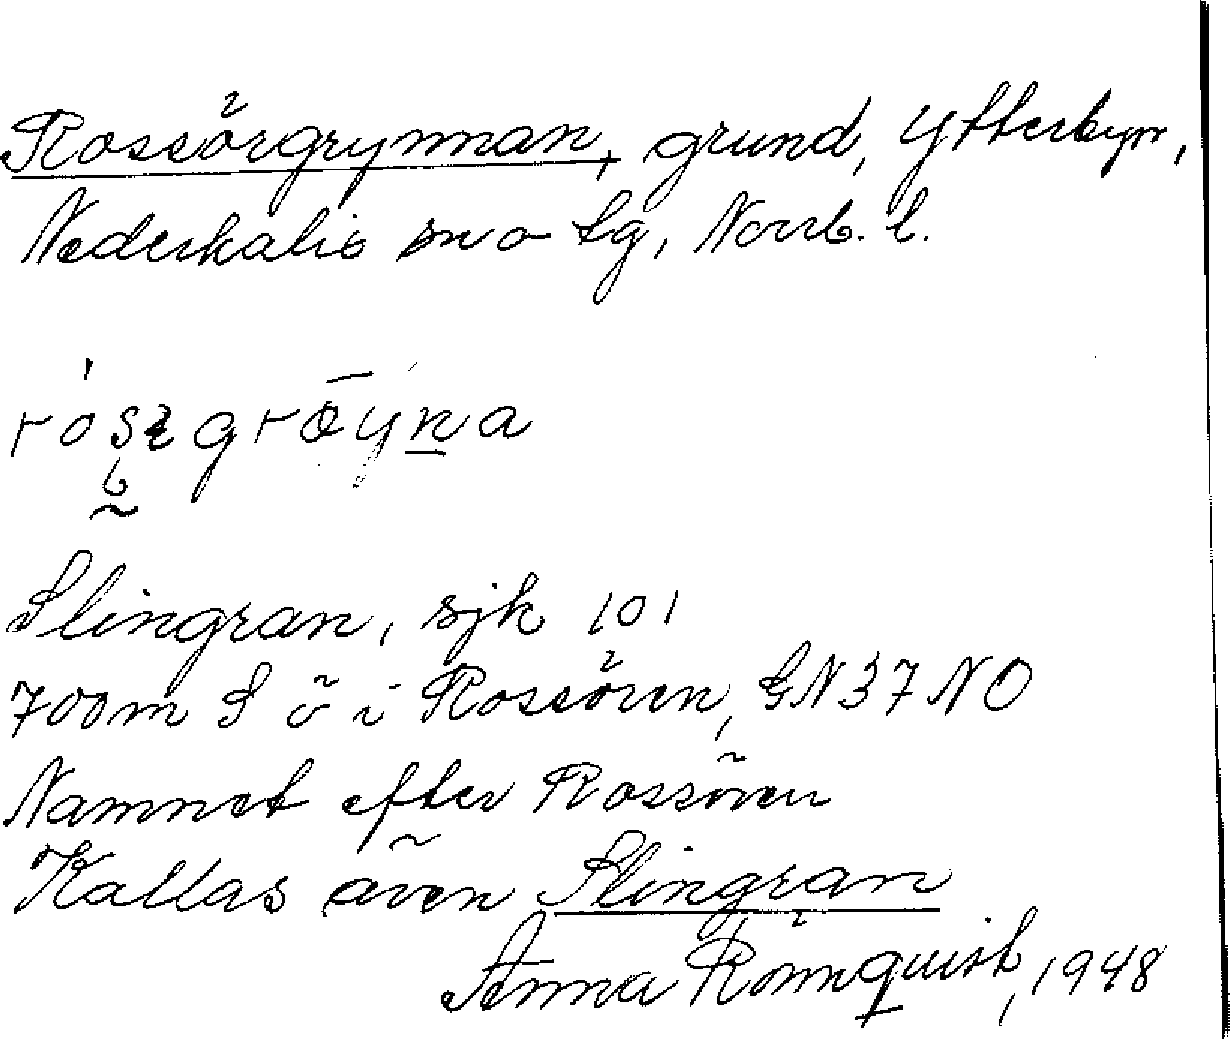 Rossörgrynnan, grund, Ytterbyn,
Nederkalix sn o tg, Norrb. l.
Slingran, sjk 101
700m S ö i Rossören, GN37NO
Namnet efter Rossören
Kallas även Slingran
Anna Rönnquist, 1948